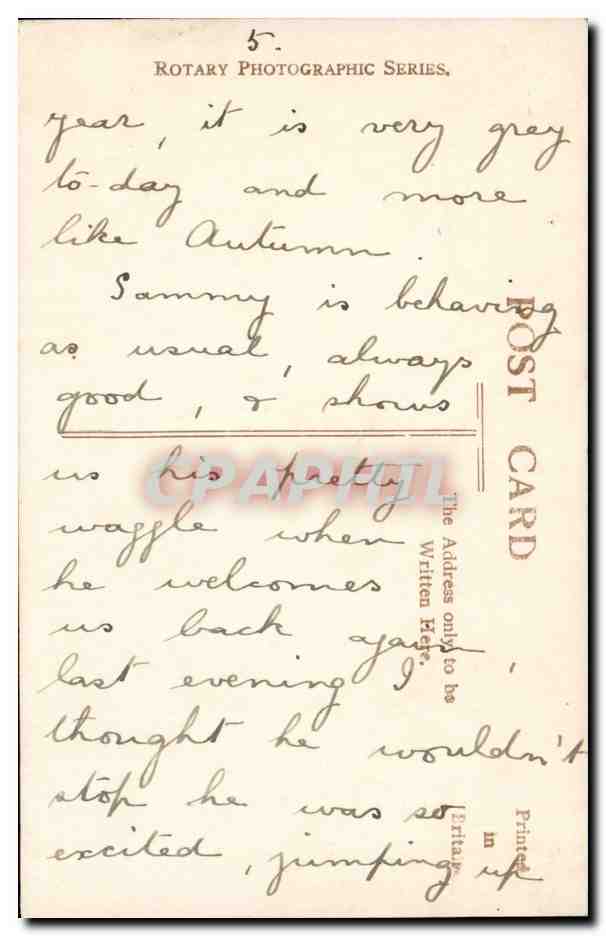 5.
ROTARY PHOTOGRAPHIC SERIES.
year, it is very grey
to-day and more
like Autumn.
Sammy is behaving
as usual, always
good, & shows
us his pretty
waggle when
he welcomes
us back again,
last evening I
thought he wouldn't
stop he was so
excited, jumping up
POST CARD
The Address only to be
Written Here.
Printed
in
Britain
CPAPHIL